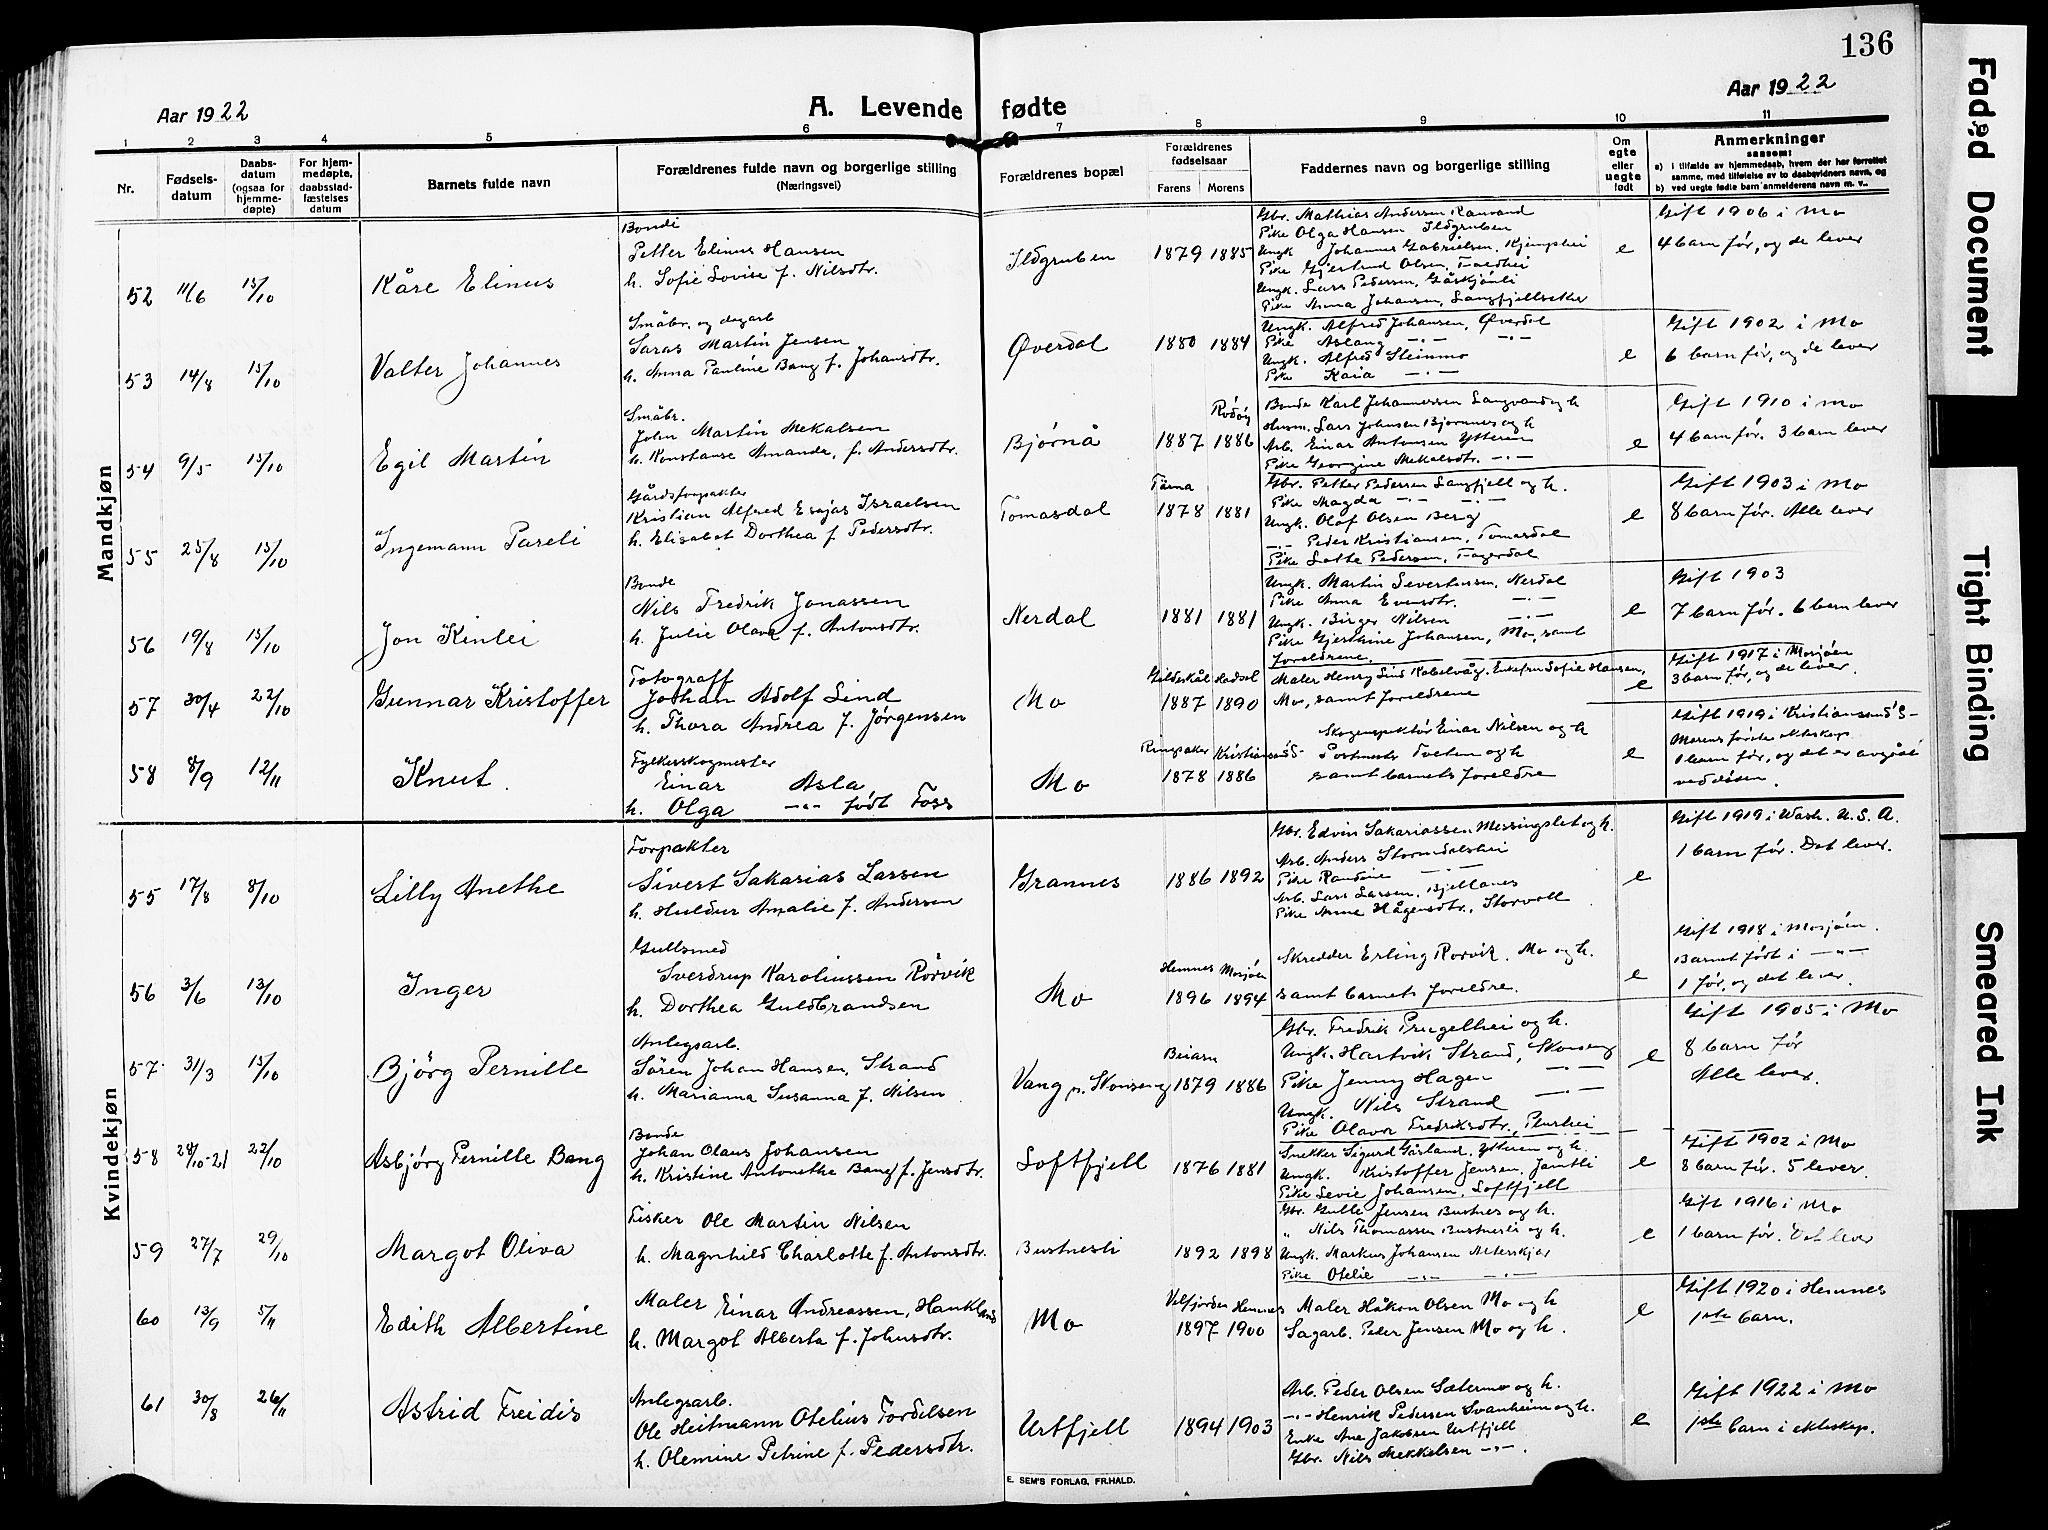 136
Aar 1922
A. Levende fødte
Aar 1922
1 2 3 4 5 6 7 8 9 10 11
Nr.
Fødsels-
datum
Daabs-
datum
(ogsaa for
hjemme-
døpte)
For hjem-
medøpte,
daabsstad-
fæstelses
datum
Barnets fulde navn
Forældrenes fulde navn og borgerlige stilling
(Næringsvei)
Forældrenes bopæl
Forældrenes
fødselsaar
Farens
Morens
Faddernes navn og borgerlige stilling
Om
egte
eller
uegte
født
Anmerkninger
saasom:
a) i tilfælde av hjemmedaab, hvem der har forrettet
samme, med tilføielse av to daabsvidners navn, og
b) ved uegte fødte barn anmelderens navn m. v..
Mandkjøn
52 11/6 15/10 Kåre Elinus
Bonde
Petter Elinus Hansen
h. Sofie Lovise f. Nilsdtr.
Ildgruben 1879 1885
Gbr. Mathias Andersen Ranvand
Pike Olga Hansen Ildgruben
Ungk Johannes Gabrielsen, Kjemphei
Pike Gjertrud Olsen,
Ungk. Lars Pedersen,
Pike Anna Johansen, Langfjellseter
e
Gift 1906 i Mo
4 barn før, og de lever
53 14/8 15/10 Valter Johannes
Småbr. og dagarb
Saras Martin Jensen
h. Anna Pauline Bang f. Johansdtr.
Øverdal 1880 1884
Ungk. Alfred Johansen, Øverdal
Pike Aslaug -"- -"-
Ungk. Alfred Steinmo
Pike Kaia -"-
e
Gift 1902 i Mo
6 barn før, og de lever
54 9/5 15/10 Egil Martin
Småbr.
John Martin Mekalsen
h. Konstanse Amanda, f. Andersdtr.
Bjørnå 1887 Rødøy 1886
Bonde Karl Johannessen Langvand og h
Husm. Lars Johnsen Bjørnnes og h
Arb. Einar Antonsen Ytteren
Pike Georgine Mekalsdtr. -"-
e
Gift 1910 i Mo
4 barn før. 3 barn lever
55 25/8 15/10 Ingemann Pareli
Gårdsforpakter
Kristian Alfred Esajas Israelsen
h. Elisabet Dorthea f Pedersdtr.
Tomasdal Tärna 1878 1881
Gbr. Petter Pedersen Langfjell og h.
Pike Magda -"- -"-
Ungk. Olaf Olsen Berg
-"- Peder Kristiansen, Tomasdal
Pike Lotte Pedersen, Fagerdal
e
Gift 1903 i Mo
8 barn før. Alle lever
56 19/8 15/10 Jon Kinlei
Bonde
Nils Fredrik Jonassen
h. Julie Olava f. Antonsdtr.
Nerdal 1881 1881
Ungk. Martin Sivertsen, Nerdal
Pike Anna Evensdtr. -"-
Ungk. Birger Nilsen -"-
Pike Gjertine Johansen, Mo, samt
foreldrene.
e
Gift 1903
7 barn før. 6 barn lever
57 30/4 22/10 Gunnar Kristoffer
Fotograff
Johan Adolf Lind
h. Thora Andrea f. Jørgensen
Mo Gildeskål 1887 Hadsel 1890
Maler Henry Lind Kabelvåg, Enkefru Sofie Hansen,
Mo, samt foreldrene
e
Gift 1917 i Mosjøen
3 barn før, og de lever.
58 8/9 12/11 Knut
Fylkesskogmester
Einar Asla,
h. Olga -"- født Foss
Mo Ringsaker 1878 Kristiansund S- 1886
Skoginspektør Einar Nilsen og h
Postmester Tveten og h
samt barnets foreldre
e
Gift 1919 i Kristiansund S-
Morens første ekteskap
1 barn før, og det er avgått
ved døden.
Kvindekjøn
55 17/8 8/10 Lilly Anethe
Forpakter
Sivert Sakarias Larsen
h. Huldur Amalie f. Andersen
Grannes 1886 1892
Gbr. Edvin Sakariassen Messingslet og h.
Arb. Anders Stormdalshei
Pike Randine -"-
Arb. Lars Larsen, Bjellånes
Pike Anna Hågensdtr., Storvoll
e
Gift 1919 i Wash. U.S.A.
1 barn før. Det lever.
56 3/6 13/10 Inger
Gullsmed
Sverdrup Karoliussen Rörvik
h. Dorthea Guldbrandsen
Mo Hemnes 1896 Mosjøen 1894
Skredder Erling Rørvik, Mo og h.
samt barnets foreldre.
e
Gift 1918 i Mosjøen.
Barnet født i -"-
1 før, og det lever.
57 31/3 15/10 Björg Pernille
Anlegsarb.
Sören Johan Hansen, Strand
h. Marianna Susanna f. Nilsen
Vang p. Skonseng Beiarn 1879 1886
Gbr. Fredrik Prugelhei og h.
Ungk. Hartvik Strand, Skonseng
Pike Jenny Hagen -"-
Ungk. Nils Strand -"-
Pike Olava Fredriksdtr.,
e
Gift 1905 i Mo
8 barn før
Alle lever.
58 28/10-21 22/10 Asbjörg Pernille Bang
Bonde
Johan Olaus Johansen
h. Kristine Antonethe Bang f. Jensdtr.
Loftfjell 1876 1881
Snekker Sigurd Gårland, Ytteren og h.
Ungk. Kristoffer Jensen, Jamtli
Pike Levie Johansen, Loftfjell
e
Gift 1902 i Mo
8 barn før. 5 lever.
59 27/7 29/10 Margot Oliva
Fisker Ole Martin Nilsen
h. Magnhild Charlotte f. Antonsdtr.
Bustnesli 1892 1898
Gbr. Gulle Jensen Bustnes og h.
" Nils Thomassen Bustnesli og h.
Ungk. Markus Johansen Alterskjær
Pike Otelie -"- -"-
e
Gift 1916 i Mo
1 barn før. Det lever
60 13/9 5/11 Edith Albertine
Maler Einar Andreassen,
h. Margot Alberta f. Johnsdtr.
Mo Velfjorden 1897 Hemnes 1900
Maler Håkon Olsen Mo og h
Sagarb. Peder Jensen Mo og h.
e
Gift 1920 i Hemnes
1ste barn.
61 30/8 26/11 Astrid Freidis
Anlegsarb.
Ole Heitmann Otelius Fordelsen
h. Olemine Petrine f. Pedersdtr.
Urtfjell 1894 1903
Arb. Peder Olsen Sætermo og h.
-"- Henrik Pedersen Svanheim og h.
Enke Ane Jakobsen Urtfjell
Gbr. Nils Mekkelsen -"-.
e
Gift 1922 i Mo
1ste barn i ekteskap.
E. SEM'S FORLAG, FR.HALD.
Faded Document
Tight Binding
Smeared Ink